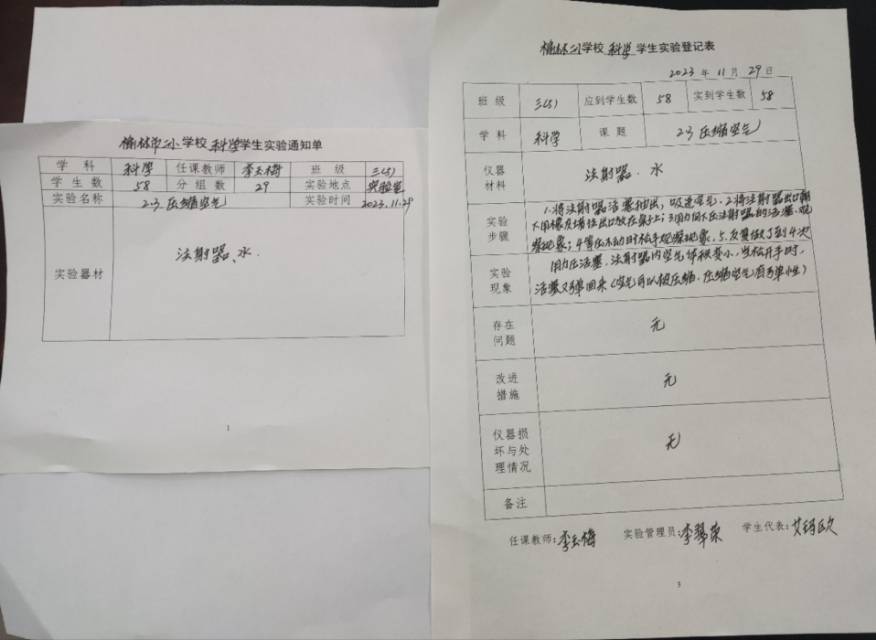 榆林市二小学校科学学生实验通知单
学科 科学 任课教师 李玉梅 班级 三(5)
学生数 58 分组数 29 实验地点 实验室
实验名称 2.3.压缩空气 实验时间 2023.11.29
实验器材 注射器、水
1
榆林二小学校科学学生实验登记表
2023年11月29日
班级 三(5) 应到学生数 58 实到学生数 58
学科 科学 课题 2.3压缩空气
仪器
材料
注射器、水
实验
步骤
1.将注射器活塞抽出,吸进空气、2.将注射器出口朝
下用橡皮堵住出口放在桌上;3.用力向下压注射器的活塞、观
察现象;4.等压不动时松手观察现象、5.反复做3到4次
实验
现象
用力压活塞,注射器内空气体积变小,当松开手时,
活塞又弹回来(空气可以被压缩、压缩空气有弹性)
存在
问题
无
改进
措施
无
仪器损
坏与处
理情况
无
备注
任课教师:李玉梅 实验管理员:李翠荣 学生代表:
3